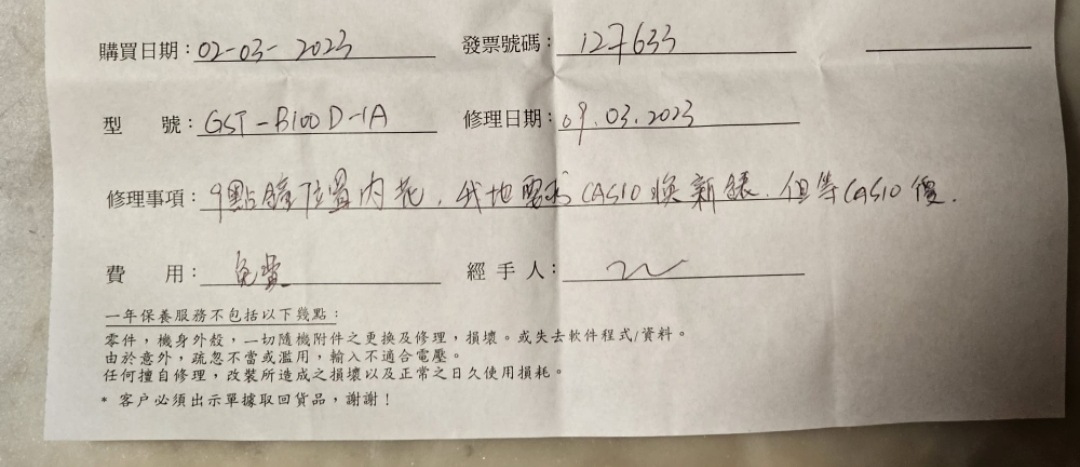 購買日期：02-03-2023 發票號碼：127633
型 號：GST-B100D-1A 修理日期：09.03.2023
修理事項：9點鐘位置內花，我地要求CASIO換新錶．但等CASIO覆．
費 用：免費 經手人：
一年保養服務不包括以下幾點：
零件，機身外殼，一切隨機附件之更換及修理，損壞。或失去軟件程式/資料。
由於意外，疏忽不當或濫用，輸入不適合電壓。
任何擅自修理，改裝所造成之損壞以及正常之日久使用損耗。
* 客户必須出示單據取回貨品，謝謝！